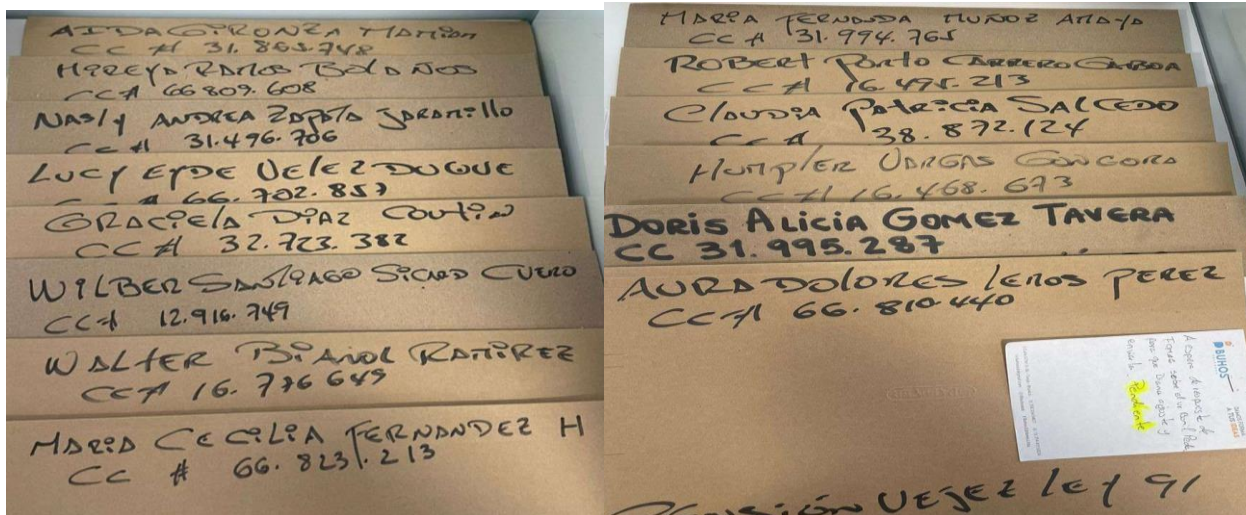 AIDA GIRONZA MAMIAN
CC # 31.865.748
MIREYA RAMOS BOLAÑOS
CC # 66.809.608
NASLY ANDREA ZAPATA JARAMILLO
CC # 31.496.706
LUCY EYDE VELEZ DUQUE
CC # 66.702.857
GRACIELA DIAZ COUTIN
CC # 32.723.382
WILBER SANTIAGO SICARD CUERO
CC # 12.916.749
WALTER BIANOR RAMIREZ
CC # 16.776649
MARIA CECILIA FERNANDEZ H
CC # 66.823.213
MARIA FERNANDA MUÑOZ AMAYA
CC # 31.994.765
ROBERT PORTO CARRERO GAMBOA
CC # 16.495.213
CLAUDIA PATRICIA SALCEDO
CC # 38.872.124
HUMPLER VARGAS GONGORA
CC # 16.468.673
DORIS ALICIA GOMEZ TAVERA
CC 31.995.287
AURA DOLORES LEMOS PEREZ
CC # 66.810.440
BUHOS
A espera de respuesta de
Pendiente
VEJEZ LEY 91